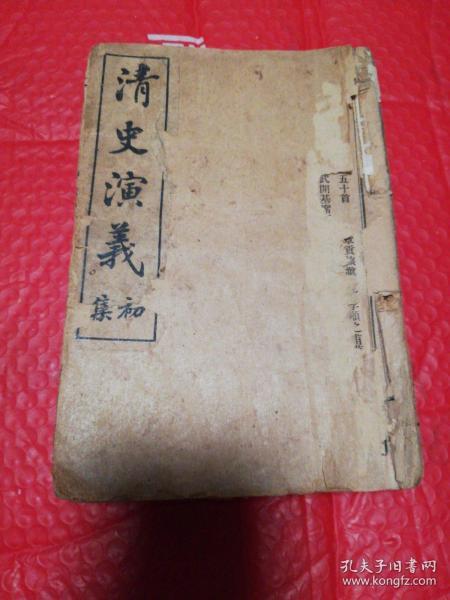 清史演義
初集
五十首
武開基
孔夫子旧书网
www.kongfz.com